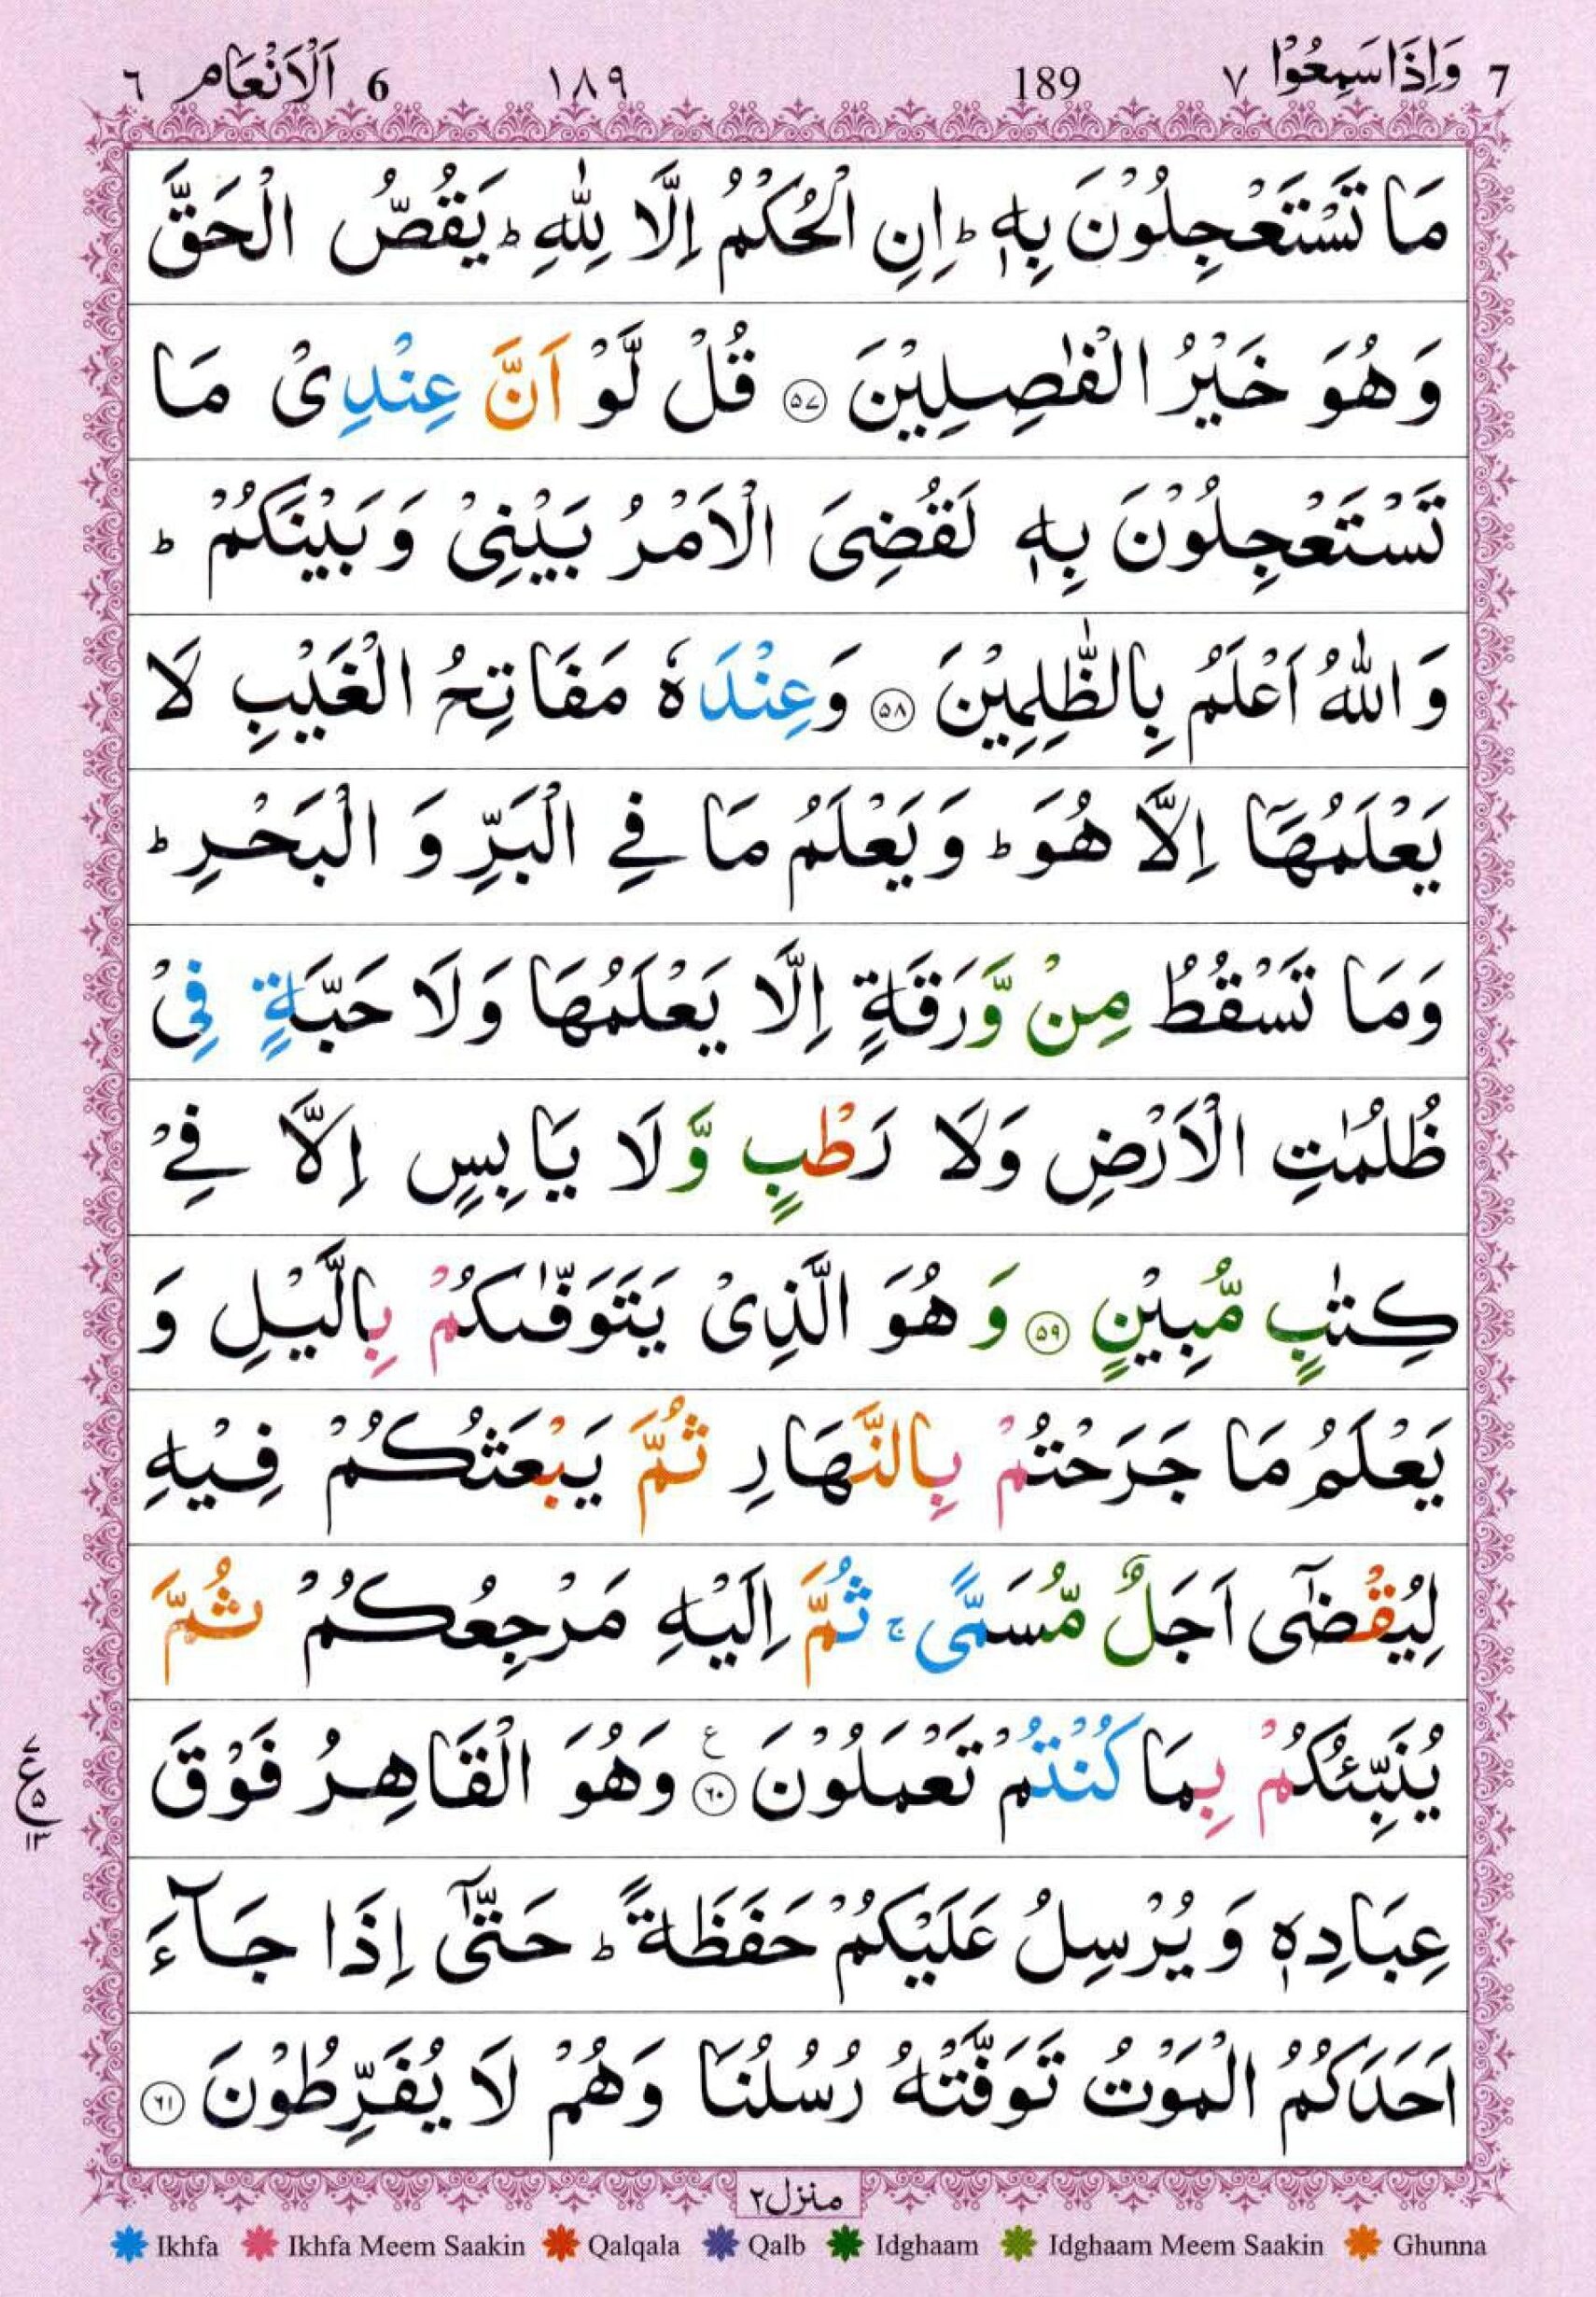 7 وَاِذَا سَمِعُوْا ٧ 189 ١٨٩ 6 اَلْاَنْعَام ٦
مَا تَسْتَعْجِلُوْنَ بِهٖ ؕ اِنِ الْحُكْمُ اِلَّا لِلّٰهِ ؕ يَقُصُّ الْحَقَّ
وَهُوَ خَيْرُ الْفٰصِلِيْنَ ﴿۵۷﴾ قُلْ لَّوْ اَنَّ عِنْدِىْ مَا
تَسْتَعْجِلُوْنَ بِهٖ لَقُضِىَ الْاَمْرُ بَيْنِىْ وَبَيْنَكُمْ ؕ
وَاللّٰهُ اَعْلَمُ بِالظّٰلِمِيْنَ ﴿۵۸﴾ وَعِنْدَهٗ مَفَاتِحُ الْغَيْبِ لَا
يَعْلَمُهَاۤ اِلَّا هُوَ ؕ وَيَعْلَمُ مَا فِى الْبَرِّ وَ الْبَحْرِ ؕ
وَمَا تَسْقُطُ مِنْ وَّرَقَةٍ اِلَّا يَعْلَمُهَا وَلَا حَبَّةٍ فِىْ
ظُلُمٰتِ الْاَرْضِ وَلَا رَطْبٍ وَّلَا يَابِسٍ اِلَّا فِىْ
كِتٰبٍ مُّبِيْنٍ ﴿۵۹﴾ وَ هُوَ الَّذِىْ يَتَوَفّٰٮكُمْ بِالَّيْلِ وَ
يَعْلَمُ مَا جَرَحْتُمْ بِالنَّهَارِ ثُمَّ يَبْعَثُكُمْ فِيْهِ
لِيُقْضٰٓى اَجَلٌ مُّسَمًّى ۚ ثُمَّ اِلَيْهِ مَرْجِعُكُمْ ثُمَّ
يُنَبِّئُكُمْ بِمَا كُنْتُمْ تَعْمَلُوْنَ ﴿۶۰﴾ ع وَهُوَ الْقَاهِرُ فَوْقَ
٧ ع ۵ ١٣
عِبَادِهٖ وَيُرْسِلُ عَلَيْكُمْ حَفَظَةً ؕ حَتّٰٓى اِذَا جَآءَ
اَحَدَكُمُ الْمَوْتُ تَوَفَّتْهُ رُسُلُنَا وَهُمْ لَا يُفَرِّطُوْنَ ﴿۶۱﴾
منزل٢
Ikhfa Ikhfa Meem Saakin Qalqala Qalb Idghaam Idghaam Meem Saakin Ghunna